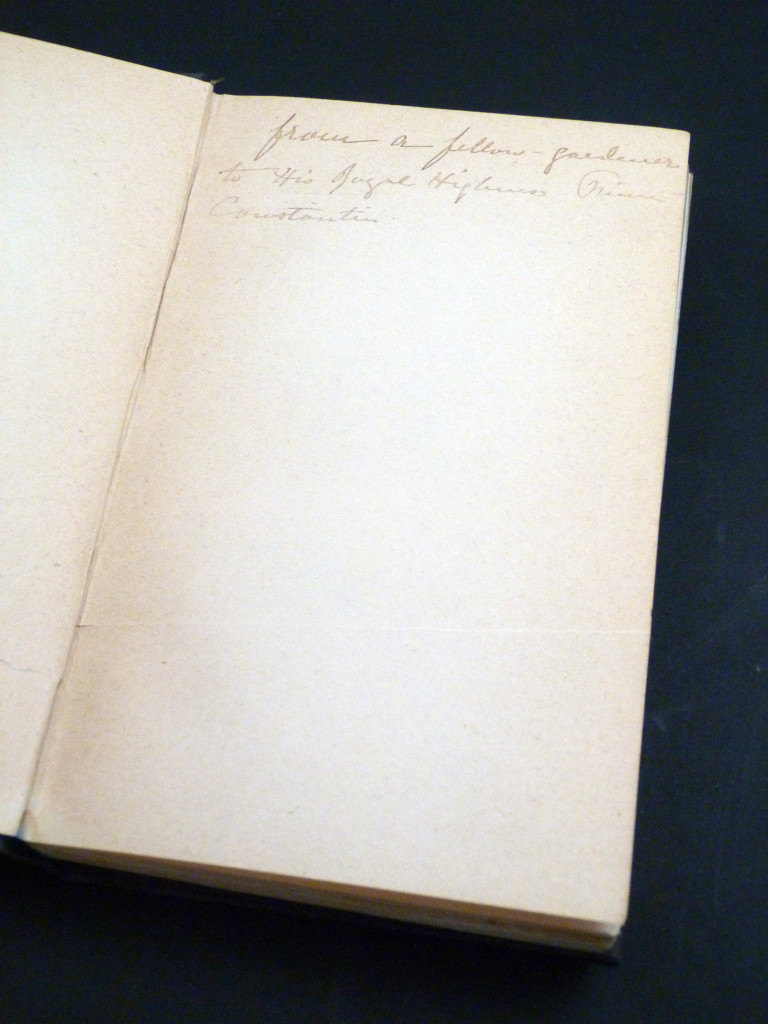 from a fellow-gardener
to His Royal Highness Prince
Constantin.